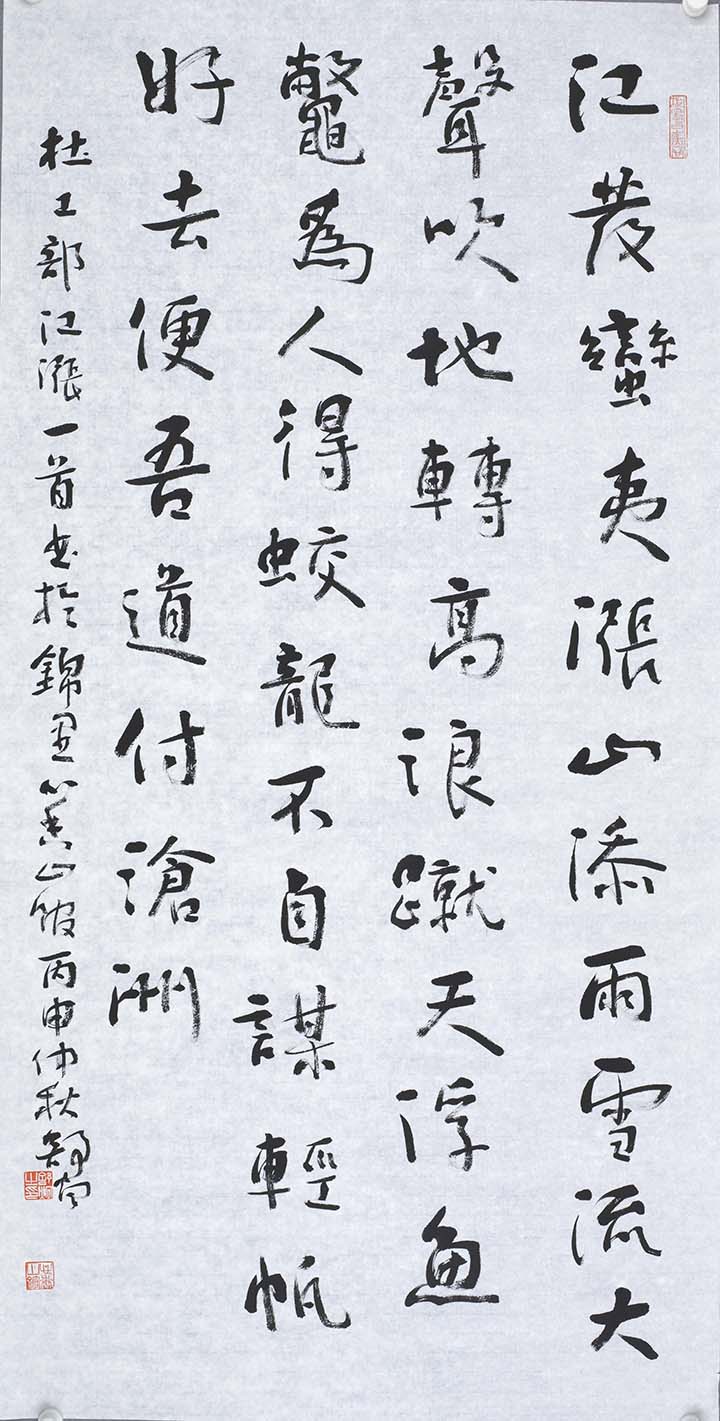 江發蠻夷漲山添雨雪流大
聲吹地轉高浪蹴天浮魚
鼈爲人得蛟龍不自謀輕帆
好去便吾道付滄洲
杜工部江漲一首書於錦里山館丙申仲秋舒炯